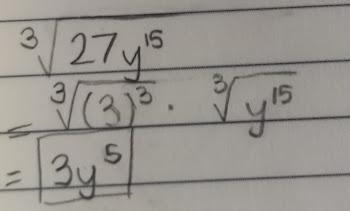 ∛27y¹⁵
= ∛(3)³ · ∛y¹⁵
= 3y⁵